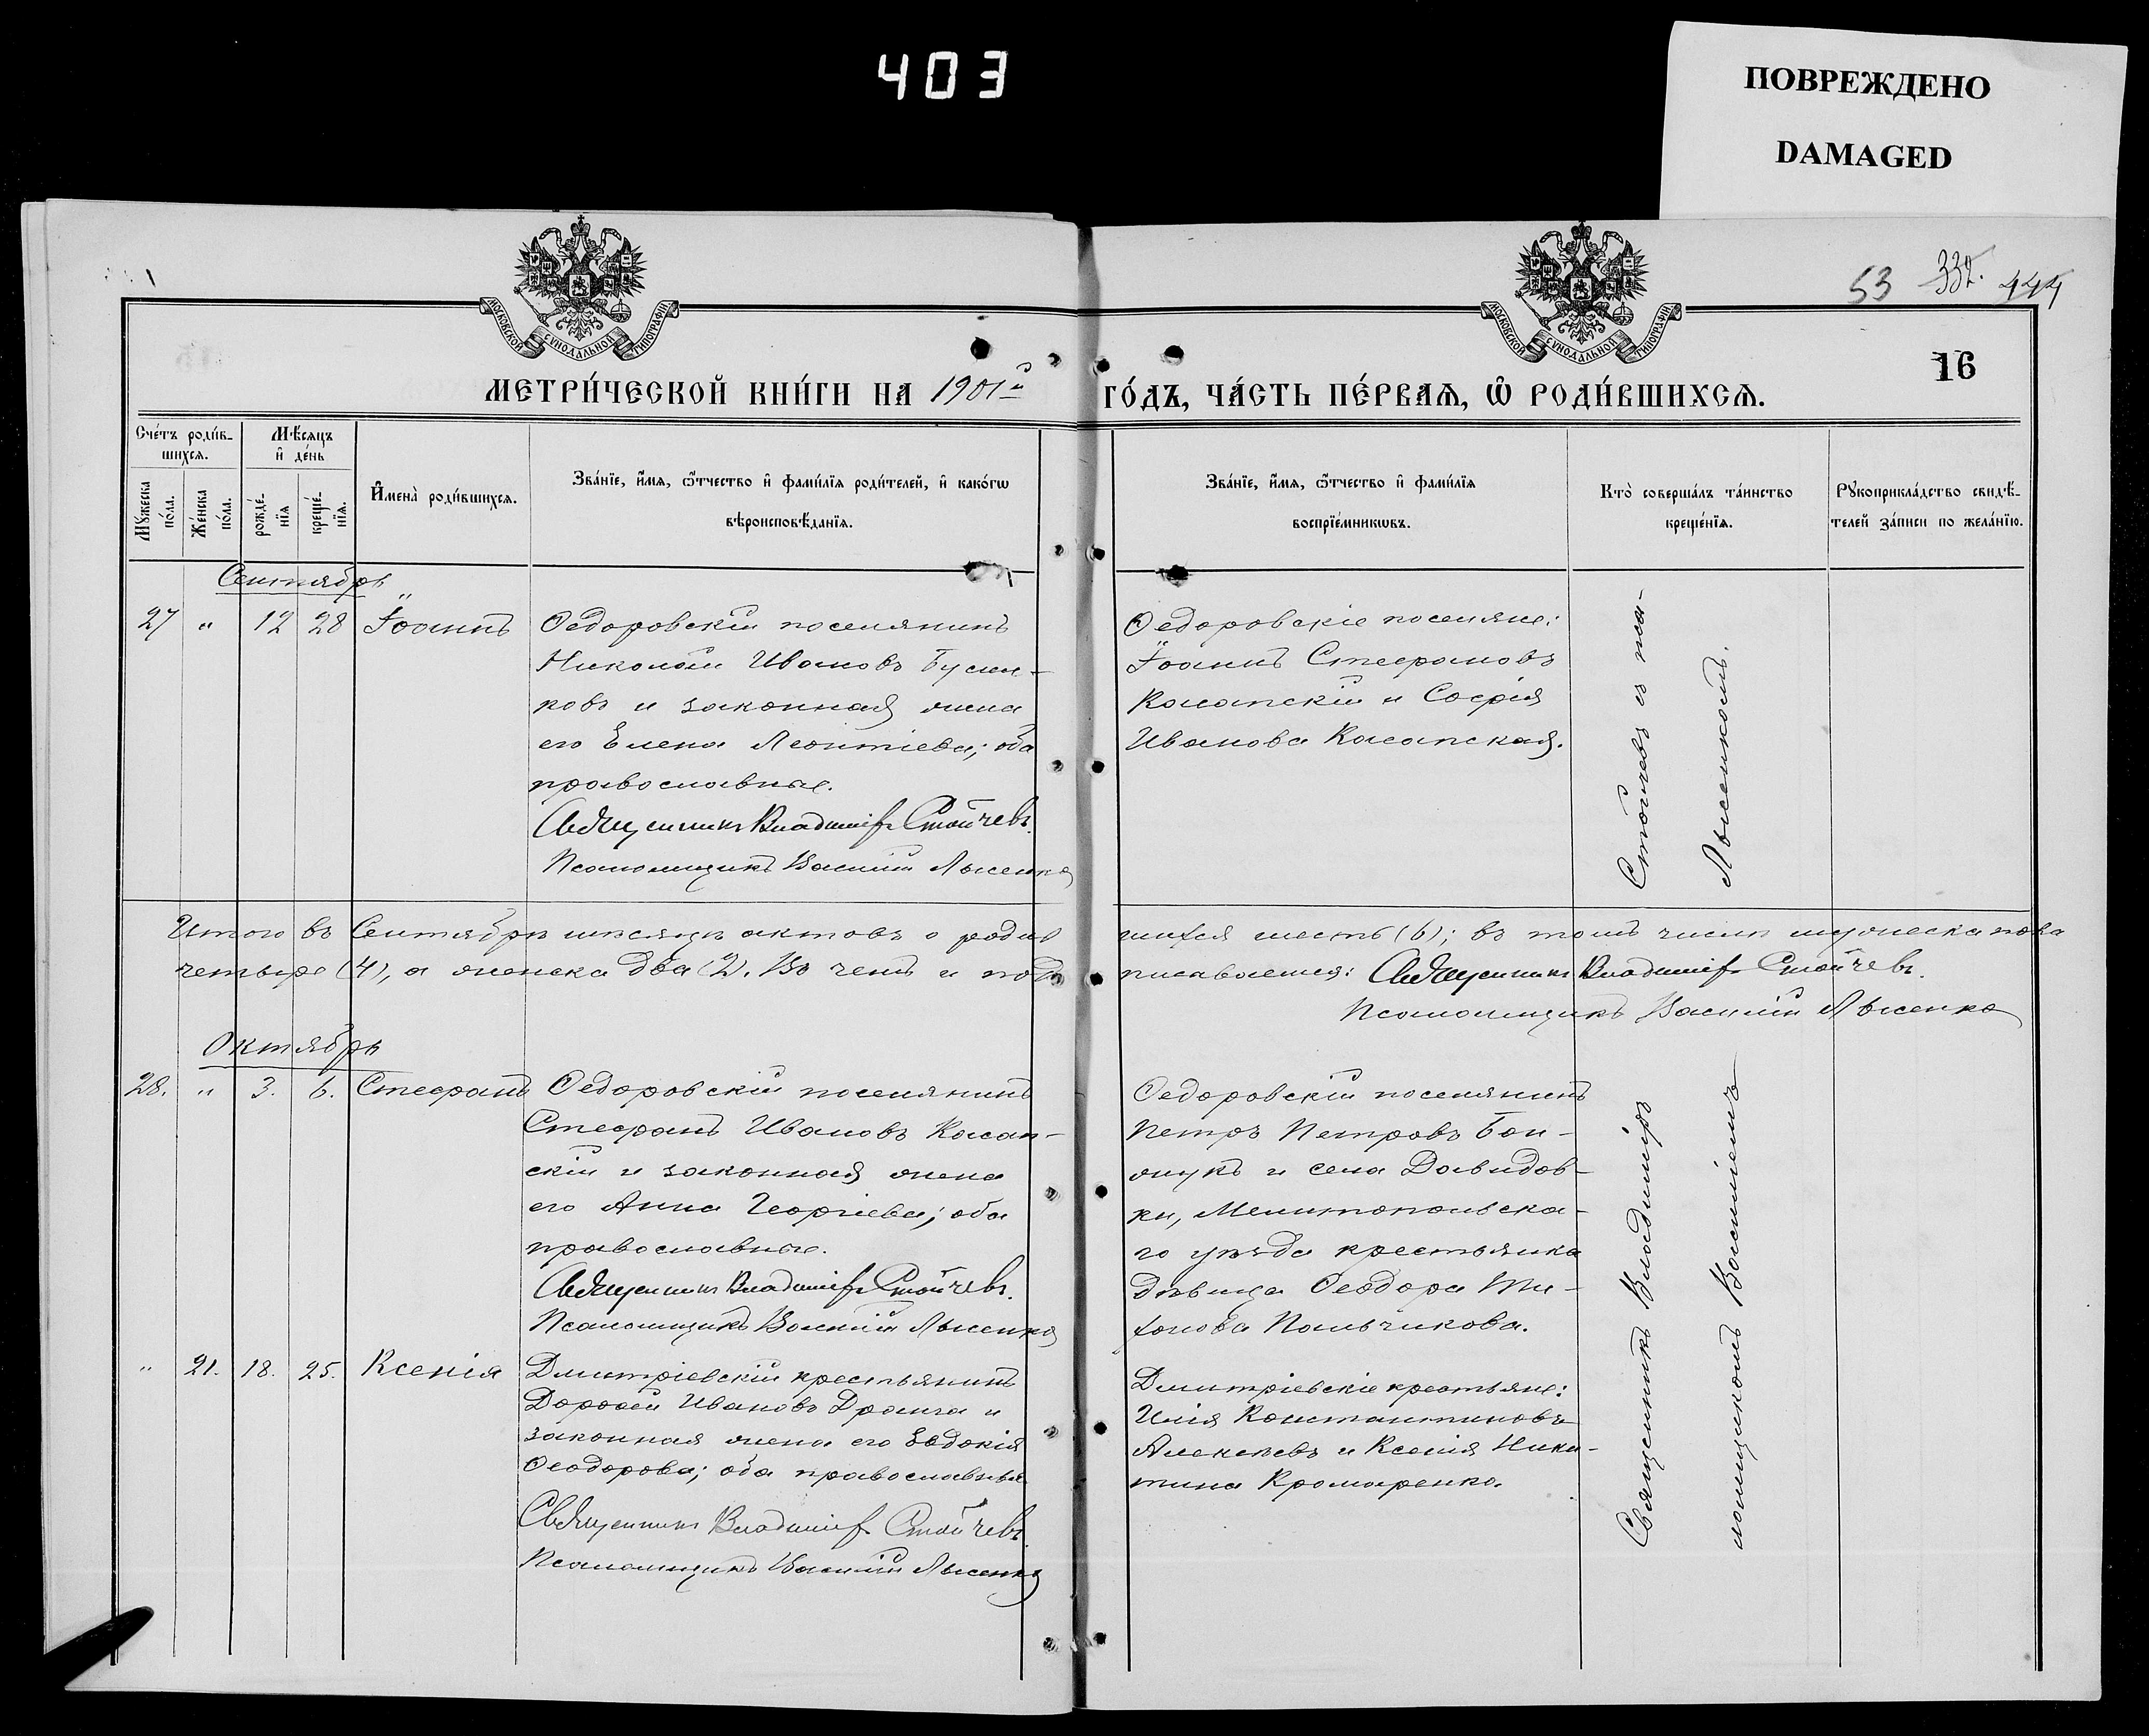 403
ПОВРЕЖДЕНО
DAMAGED
МОСКОВСКОЙ СѴНОДАЛЬНОЙ ТИПОГРАФІИ
МОСКОВСКОЙ СѴНОДАЛЬНОЙ ТИПОГРАФІИ
53 332. 444
16
МЕТРИ́ЧЕСКОЙ КНИ́ГИ НА 1901й ГО́ДЪ, ЧА́СТЬ ПЕ́РВАѦ, Ѽ РОДИ́ВШИХСѦ.
Сче́тъ роди́в-
шихсѧ.
Мꙋ́жеска по́ла.
Же́нска по́ла.
Мѣ́сѧцъ
и҆ де́нь
рожде́-
нїѧ
креще́-
нїѧ.
И҆мена̀ роди́вшихсѧ.
Зва́нїе, и҆́мѧ, ѻ҆́тчество и҆ фами́лїѧ роди́телей, и҆ како́гѡ
вѣроисповѣ́данїѧ.
Зва́нїе, и҆́мѧ, ѻ҆́тчество и҆ фами́лїѧ
воспрїе́мникѡвъ.
Кто̀ соверша́лъ та́инство
креще́нїѧ.
Рꙋкоприкла́дство свидѣ́-
телей за́писи по жела́нїю.
Сентябрь
27 " 12 28 Іоаннъ
Ѳедоровскій поселянинъ
Николай Ивановъ Бусли-
ковъ и законная жена
его Елена Леонтіева; оба
православные.
Священникъ Владиміръ Стойчевъ.
Псаломщикъ Василій Лысенко
Ѳедоровскіе поселяне:
Іоаннъ Стефановъ
Касапскій и Софія
Иванова Касапская.
Стойчевъ съ пса-
Лысенкомъ.
Итого въ Сентябрѣ мѣсяцѣ актовъ о родив шихся шесть (6); въ томъ числѣ мужеска пола
четыре (4), а женска два (2). Въ чемъ и под писываемся: Священникъ Владиміръ Стойчевъ.
Псаломщикъ Василій Лысенко
Октябрь
28. " 3. 6. Стефанъ
Ѳедоровскій поселянинъ
Стефанъ Ивановъ Касап-
скій и законная жена
его Анна Георгіева; оба
православные.
Священникъ Владиміръ Стойчевъ.
Псаломщикъ Василій Лысенко
Ѳедоровскій поселянинъ
Петръ Петровъ Бон-
жукъ и села Давидов-
ки, Мелитопольска-
го уѣзда крестьянка
дѣвица Ѳеодора Ти-
хонова Пальчикова.
" 21. 18. 25. Ксенія
Дмитріевскій крестьянинъ
Дороѳей Ивановъ Драгига и
законная жена его Евдокія
Ѳеодорова; оба православные
Священникъ Владиміръ Стойчевъ.
Псаломщикъ Василій Лысенко
Дмитріевскіе крестьяне:
Илія Константиновъ
Алексѣевъ и Ксенія Ники-
тина Крамаренко.
Священникъ Владиміръ
ломщикомъ Василіемъ